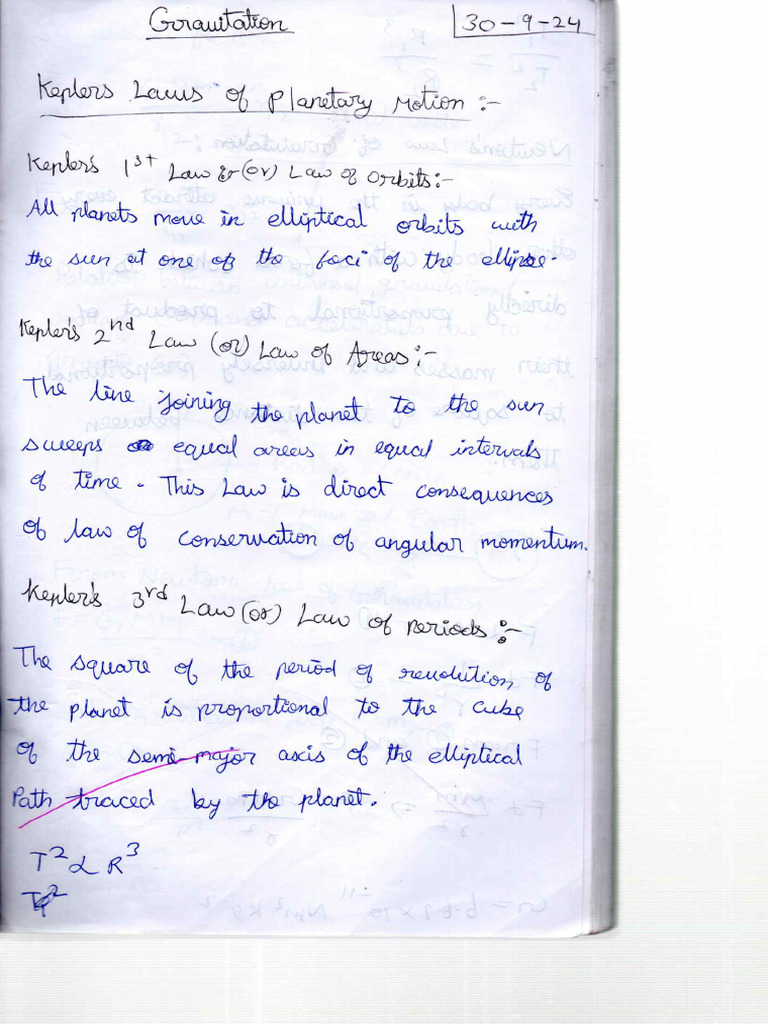 Gravitation
30-9-24
Keplers Laws of Planetary Motion :-
Kepler's 1st Law (or) Law of Orbits:-
All planets move in elliptical orbits with
the sun at one of the foci of the ellipse.
Kepler's 2nd Law (or) Law of Areas:-
The line joining the planet to the sun
sweeps equal areas in equal intervals
of time. This Law is direct consequences
of law of conservation of angular momentum.
Kepler's 3rd Law (or) Law of Periods:-
The square of the period of revolution of
the planet is proportional to the cube
of the semi-major axis of the elliptical
Path traced by the planet.
T² ∝ R³